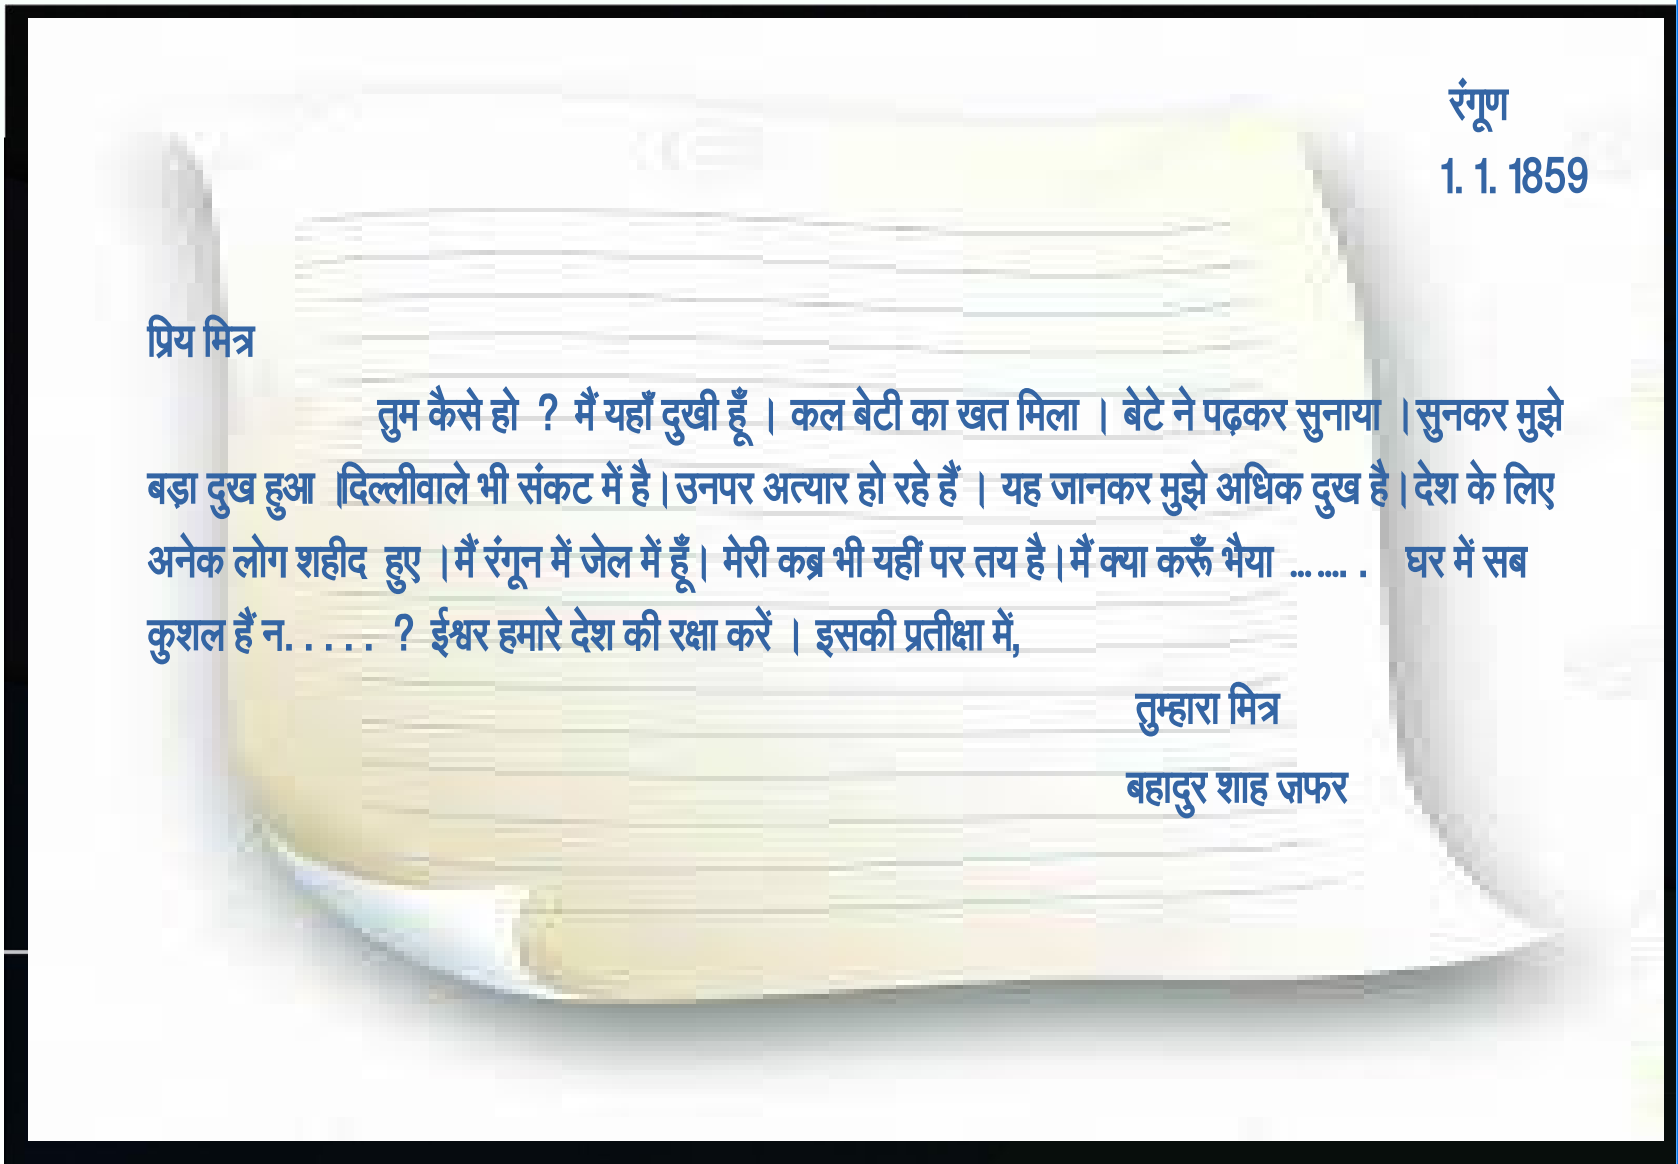 रंगूण
1. 1. 1859
प्रिय मित्र
तुम कैसे हो ? मैं यहाँ दुखी हूँ । कल बेटी का खत मिला । बेटे ने पढ़कर सुनाया ।सुनकर मुझे
बड़ा दुख हुआ ।दिल्लीवाले भी संकट में है।उनपर अत्यार हो रहे हैं । यह जानकर मुझे अधिक दुख है।देश के लिए
अनेक लोग शहीद हुए ।मैं रंगून में जेल में हूँ। मेरी कब्र भी यहीं पर तय है।मैं क्या करूँ भैया ... .... . घर में सब
कुशल हैं न. . . . . ? ईश्वर हमारे देश की रक्षा करें । इसकी प्रतीक्षा में,
तुम्हारा मित्र
बहादुर शाह ज़फर